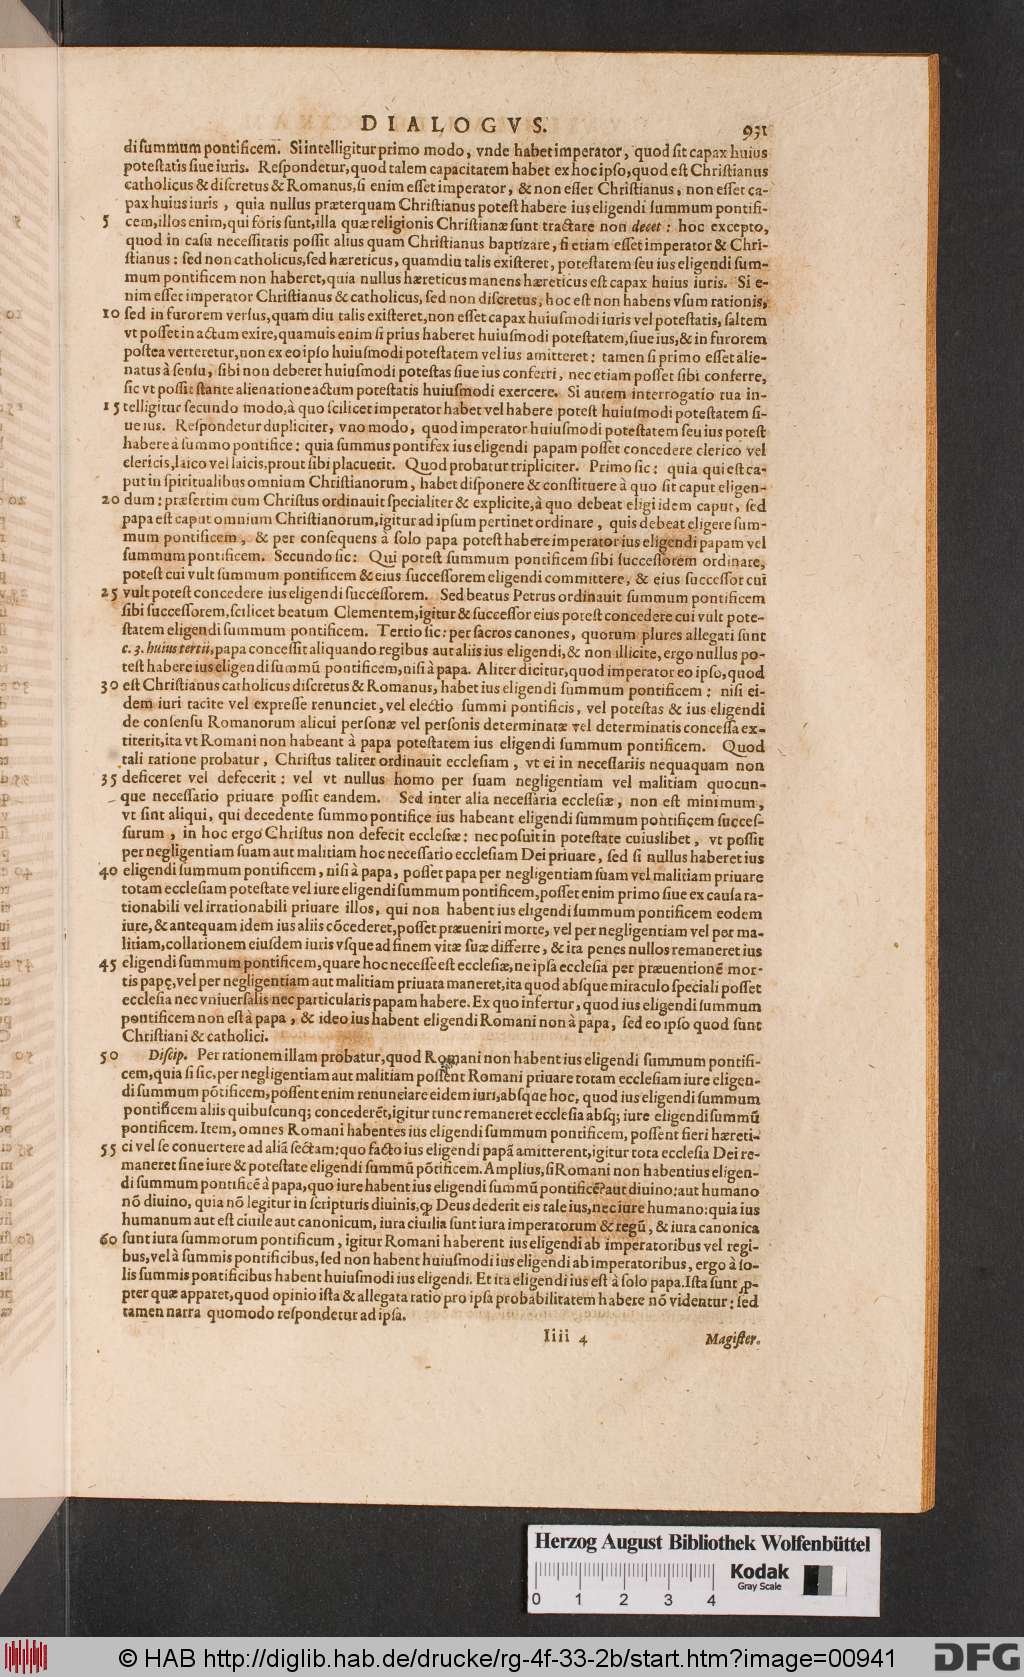 DIALOGVS. 931
di ſummum pontificem. Si intelligitur primo modo, vnde habet imperator, quod ſit capax huius
poteſtatis ſiue iuris. Reſpondetur, quod talem capacitatem habet ex hoc ipſo, quod eſt Chriſtianus
catholicus & diſcretus & Romanus, ſi enim eſſet imperator, & non eſſet Chriſtianus, non eſſet ca-
pax huius iuris, quia nullus præterquam Chriſtianus poteſt habere ius eligendi ſummum pontifi-
5 cem, illos enim, qui foris ſunt, illa quæ religionis Chriſtianæ ſunt tractare non decet: hoc excepto,
quod in caſu neceſſitatis poſſit alius quam Chriſtianus baptizare, ſi etiam eſſet imperator & Chri-
ſtianus: ſed non catholicus, ſed hæreticus, quamdiu talis exiſteret, poteſtatem ſeu ius eligendi ſum-
mum pontificem non haberet, quia nullus hæreticus manens hæreticus eſt capax huius iuris. Si e-
nim eſſet imperator Chriſtianus & catholicus, ſed non diſcretus, hoc eſt non habens vſum rationis,
10 ſed in furorem verſus, quam diu talis exiſteret, non eſſet capax huiuſmodi iuris vel poteſtatis, ſaltem
vt poſſet in actum exire, quamuis enim ſi prius haberet huiuſmodi poteſtatem, ſiue ius, & in furorem
poſtea verteretur, non ex eo ipſo huiuſmodi poteſtatem vel ius amitteret: tamen ſi primo eſſet alie-
natus à ſenſu, ſibi non deberet huiuſmodi poteſtas ſiue ius conferri, nec etiam poſſet ſibi conferre,
ſic vt poſſit ſtante alienatione actum poteſtatis huiuſmodi exercere. Si autem interrogatio tua in-
15 telligitur ſecundo modo, à quo ſcilicet imperator habet vel habere poteſt huiuſmodi poteſtatem ſi-
ue ius. Reſpondetur dupliciter, vno modo, quod imperator huiuſmodi poteſtatem ſeu ius poteſt
habere à ſummo pontifice: quia ſummus pontifex ius eligendi papam poſſet concedere clerico vel
clericis, laico vel laicis, prout ſibi placuerit. Quod probatur tripliciter. Primo ſic: quia qui eſt ca-
put in ſpiritualibus omnium Chriſtianorum, habet diſponere & conſtituere à quo ſit caput eligen-
20 dum: præſertim cum Chriſtus ordinauit ſpecialiter & explicite, à quo debeat eligi idem caput, ſed
papa eſt caput omnium Chriſtianorum, igitur ad ipſum pertinet ordinare, quis debeat eligere ſum-
mum pontificem, & per conſequens à ſolo papa poteſt habere imperator ius eligendi papam vel
ſummum pontificem. Secundo ſic: Qui poteſt ſummum pontificem ſibi ſucceſſorem ordinare,
poteſt cui vult ſummum pontificem & eius ſucceſſorem eligendi committere, & eius ſucceſſor cui
25 vult poteſt concedere ius eligendi ſucceſſorem. Sed beatus Petrus ordinauit ſummum pontificem
ſibi ſucceſſorem, ſcilicet beatum Clementem, igitur & ſucceſſor eius poteſt concedere cui vult pote-
ſtatem eligendi ſummum pontificem. Tertio ſic: per ſacros canones, quorum plures allegati ſunt
c. 3. huius tertii, papa conceſſit aliquando regibus aut aliis ius eligendi, & non illicite, ergo nullus po-
teſt habere ius eligendi ſummū pontificem, niſi à papa. Aliter dicitur, quod imperator eo ipſo, quod
30 eſt Chriſtianus catholicus diſcretus & Romanus, habet ius eligendi ſummum pontificem: niſi ei-
dem iuri tacite vel expreſſe renunciet, vel electio ſummi pontificis, vel poteſtas & ius eligendi
de conſenſu Romanorum alicui perſonæ vel perſonis determinatæ vel determinatis conceſſa ex-
titerit, ita vt Romani non habeant à papa poteſtatem ius eligendi ſummum pontificem. Quod
tali ratione probatur, Chriſtus taliter ordinauit eccleſiam, vt ei in neceſſariis nequaquam non
35 deficeret vel defecerit: vel vt nullus homo per ſuam negligentiam vel malitiam quocun-
que neceſſario priuare poſſit eandem. Sed inter alia neceſſaria eccleſiæ, non eſt minimum,
vt ſint aliqui, qui decedente ſummo pontifice ius habeant eligendi ſummum pontificem ſucceſ-
ſurum, in hoc ergo Chriſtus non defecit eccleſiæ: nec poſuit in poteſtate cuiuslibet, vt poſſit
per negligentiam ſuam aut malitiam hoc neceſſario eccleſiam Dei priuare, ſed ſi nullus haberet ius
40 eligendi ſummum pontificem, niſi à papa, poſſet papa per negligentiam ſuam vel malitiam priuare
totam eccleſiam poteſtate vel iure eligendi ſummum pontificem, poſſet enim primo ſiue ex cauſa ra-
tionabili vel irrationabili priuare illos, qui non habent ius eligendi ſummum pontificem eodem
iure, & antequam idem ius aliis cōcederet, poſſet præueniri morte, vel per negligentiam vel per ma-
litiam, collationem eiuſdem iuris vſque ad finem vitæ ſuæ differre, & ita penes nullos remaneret ius
45 eligendi ſummum pontificem, quare hoc neceſſe eſt eccleſiæ, ne ipſa eccleſia per præuentionē mor-
tis papę, vel per negligentiam aut malitiam priuata maneret, ita quod abſque miraculo ſpeciali poſſet
eccleſia nec vniuerſalis nec particularis papam habere. Ex quo infertur, quod ius eligendi ſummum
pontificem non eſt à papa, & ideo ius habent eligendi Romani non à papa, ſed eo ipſo quod ſunt
Chriſtiani & catholici.
50 Diſcip. Per rationem illam probatur, quod Romani non habent ius eligendi ſummum pontifi-
cem, quia ſi ſic, per negligentiam aut malitiam poſſent Romani priuare totam eccleſiam iure eligen-
di ſummum pōtificem, poſſent enim renunciare eidem iuri, abſque hoc, quod ius eligendi ſummum
pontificem aliis quibuſcunq; concederēt, igitur tunc remaneret eccleſia abſq; iure eligendi ſummū
pontificem. Item, omnes Romani habentes ius eligendi ſummum pontificem, poſſent fieri hæreti-
55 ci vel ſe conuertere ad aliā ſectam: quo facto ius eligendi papā amitterent, igitur tota eccleſia Dei re-
maneret ſine iure & poteſtate eligendi ſummū pōtificem. Amplius, ſi Romani non habent ius eligen-
di ſummum pontificē à papa, quo iure habent ius eligendi ſummū pontificē? aut diuino: aut humano
nō diuino, quia nō legitur in ſcripturis diuinis, ꝙ Deus dederit eis tale ius, nec iure humano: quia ius
humanum aut eſt ciuile aut canonicum, iura ciuilia ſunt iura imperatorum & regū, & iura canonica
60 ſunt iura ſummorum pontificum, igitur Romani haberent ius eligendi ab imperatoribus vel regi-
bus, vel à ſummis pontificibus, ſed non habent huiuſmodi ius eligendi ab imperatoribus, ergo à ſo-
lis ſummis pontificibus habent huiuſmodi ius eligendi. Et ita eligendi ius eſt à ſolo papa. Iſta ſunt ꝓ-
pter quæ apparet, quod opinio iſta & allegata ratio pro ipſa probabilitatem habere nō videntur: ſed
tamen narra quomodo reſpondetur ad ipſa.
Iiii 4 Magiſter.
Herzog August Bibliothek Wolfenbüttel
Kodak
Gray Scale
0 1 2 3 4
© HAB http://diglib.hab.de/drucke/rg-4f-33-2b/start.htm?image=00941
DFG